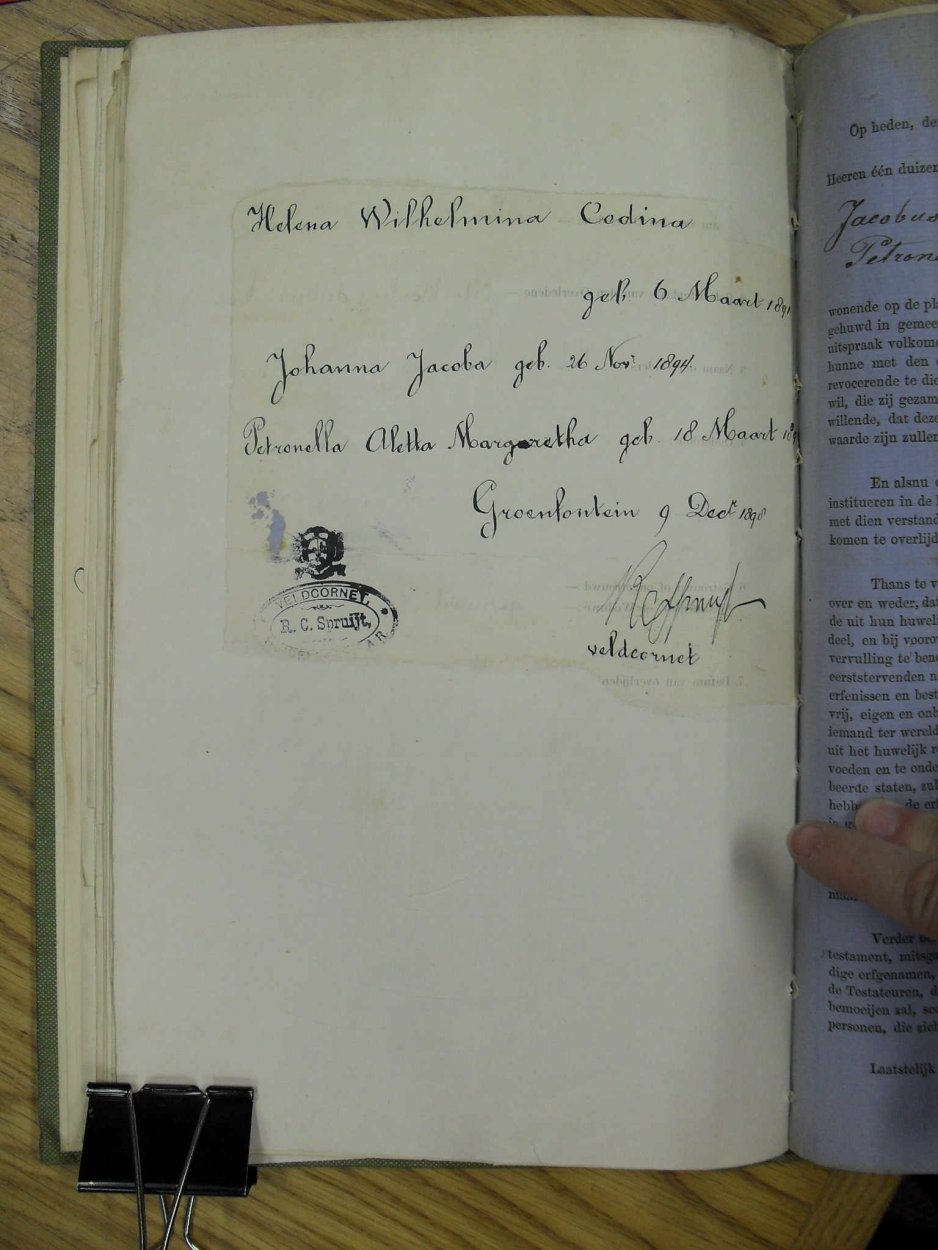 Helena Wilhelmina Codina
geb 6 Maart 1891
Johanna Jacoba geb. 26 Novr 1894
Petronella Aletta Margaretha geb. 18 Maart
Groenfontein 9 Decr 1898
VELDCORNET,
R. C. Spruijt,
veldcornet
7. Datum van overlijden
Op heden, de
Heeren één duizen
Jacobus
Petron
wonende op de pla
gehuwd in gemee
uitspraak volkome
hunne met den
revocerende te die
wil, die zij gezam
willende, dat deze
waarde zijn zullen
En alsnu
institueren in de
met dien verstand
komen te overlijd
Thans te v
over en weder, dat
de uit hun huweli
deel, en bij vooro
vervulling te bene
eerststervenden n
erfenissen en best
vrij, eigen en onb
iemand ter wereld
uit het huwelijk r
voeden en te onde
beerde staten, zul
hebb de er
Verder
testament, mitsg
dige erfgenamen,
de Testateuren, d
bemoeijen zal, see
personen, die zich
Laatstelijk